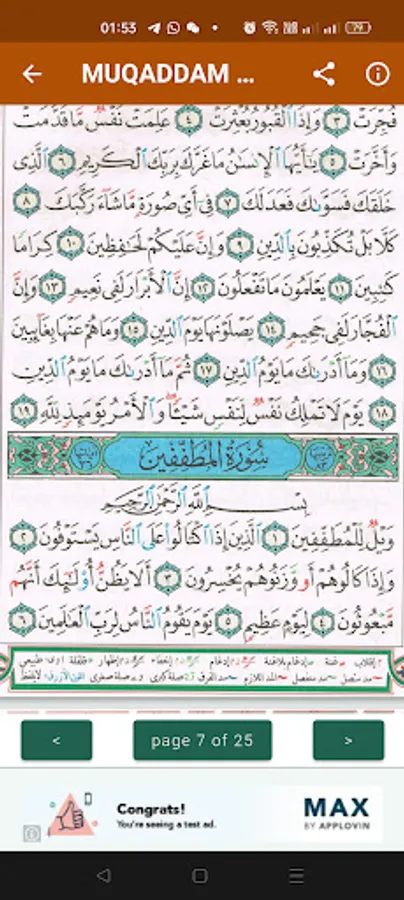 01:53
79
MUQADDAM ...
فُجِّرَتْ ٣ وَإِذَا ٱلْقُبُورُ بُعْثِرَتْ ٤ عَلِمَتْ نَفْسٌ مَّا قَدَّمَتْ
وَأَخَّرَتْ ٥ يَـٰٓأَيُّهَا ٱلْإِنسَـٰنُ مَا غَرَّكَ بِرَبِّكَ ٱلْكَرِيمِ ٦ ٱلَّذِى
خَلَقَكَ فَسَوَّىٰكَ فَعَدَلَكَ ٧ فِىٓ أَىِّ صُورَةٍ مَّا شَآءَ رَكَّبَكَ ٨
كَلَّا بَلْ تُكَذِّبُونَ بِٱلدِّينِ ٩ وَإِنَّ عَلَيْكُمْ لَحَـٰفِظِينَ ١٠ كِرَامًا
كَـٰتِبِينَ ١١ يَعْلَمُونَ مَا تَفْعَلُونَ ١٢ إِنَّ ٱلْأَبْرَارَ لَفِى نَعِيمٍ ١٣ وَإِنَّ
ٱلْفُجَّارَ لَفِى جَحِيمٍ ١٤ يَصْلَوْنَهَا يَوْمَ ٱلدِّينِ ١٥ وَمَا هُمْ عَنْهَا بِغَآئِبِينَ
١٦ وَمَآ أَدْرَىٰكَ مَا يَوْمُ ٱلدِّينِ ١٧ ثُمَّ مَآ أَدْرَىٰكَ مَا يَوْمُ ٱلدِّينِ
١٨ يَوْمَ لَا تَمْلِكُ نَفْسٌ لِّنَفْسٍ شَيْـًٔا وَٱلْأَمْرُ يَوْمَئِذٍ لِّلَّهِ ١٩
سُورَةُ المُطَفِّفِينَ
بِسْمِ ٱللَّهِ ٱلرَّحْمَـٰنِ ٱلرَّحِيمِ
وَيْلٌ لِّلْمُطَفِّفِينَ ١ ٱلَّذِينَ إِذَا ٱكْتَالُوا۟ عَلَى ٱلنَّاسِ يَسْتَوْفُونَ ٢
وَإِذَا كَالُوهُمْ أَو وَّزَنُوهُمْ يُخْسِرُونَ ٣ أَلَا يَظُنُّ أُو۟لَـٰٓئِكَ أَنَّهُم
مَّبْعُوثُونَ ٤ لِيَوْمٍ عَظِيمٍ ٥ يَوْمَ يَقُومُ ٱلنَّاسُ لِرَبِّ ٱلْعَـٰلَمِينَ ٦
<
page 7 of 25
>
Congrats!
You're seeing a test ad.
MAX
BY APPLOVIN